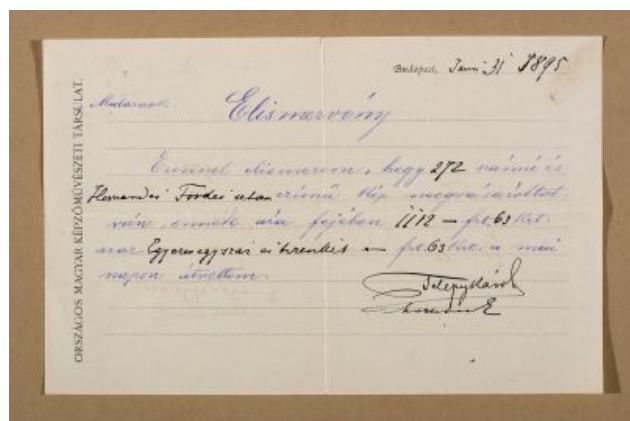 ORSZÁGOS MAGYAR KÉPZŐMŰVÉSZETI TÁRSULAT.
Budapest, Janu. 31 1895
Műtárnok
Elismervény
Ezennel elismerem, hogy 272 számú és
Fordai után czímű kép megvásároltat-
ván, ennek ára fejében 1112 – frt. 63 krt.
azaz Egyezeregyszáz – frt. 63 krt. a mai
napon átvettem.
Telepy Károly